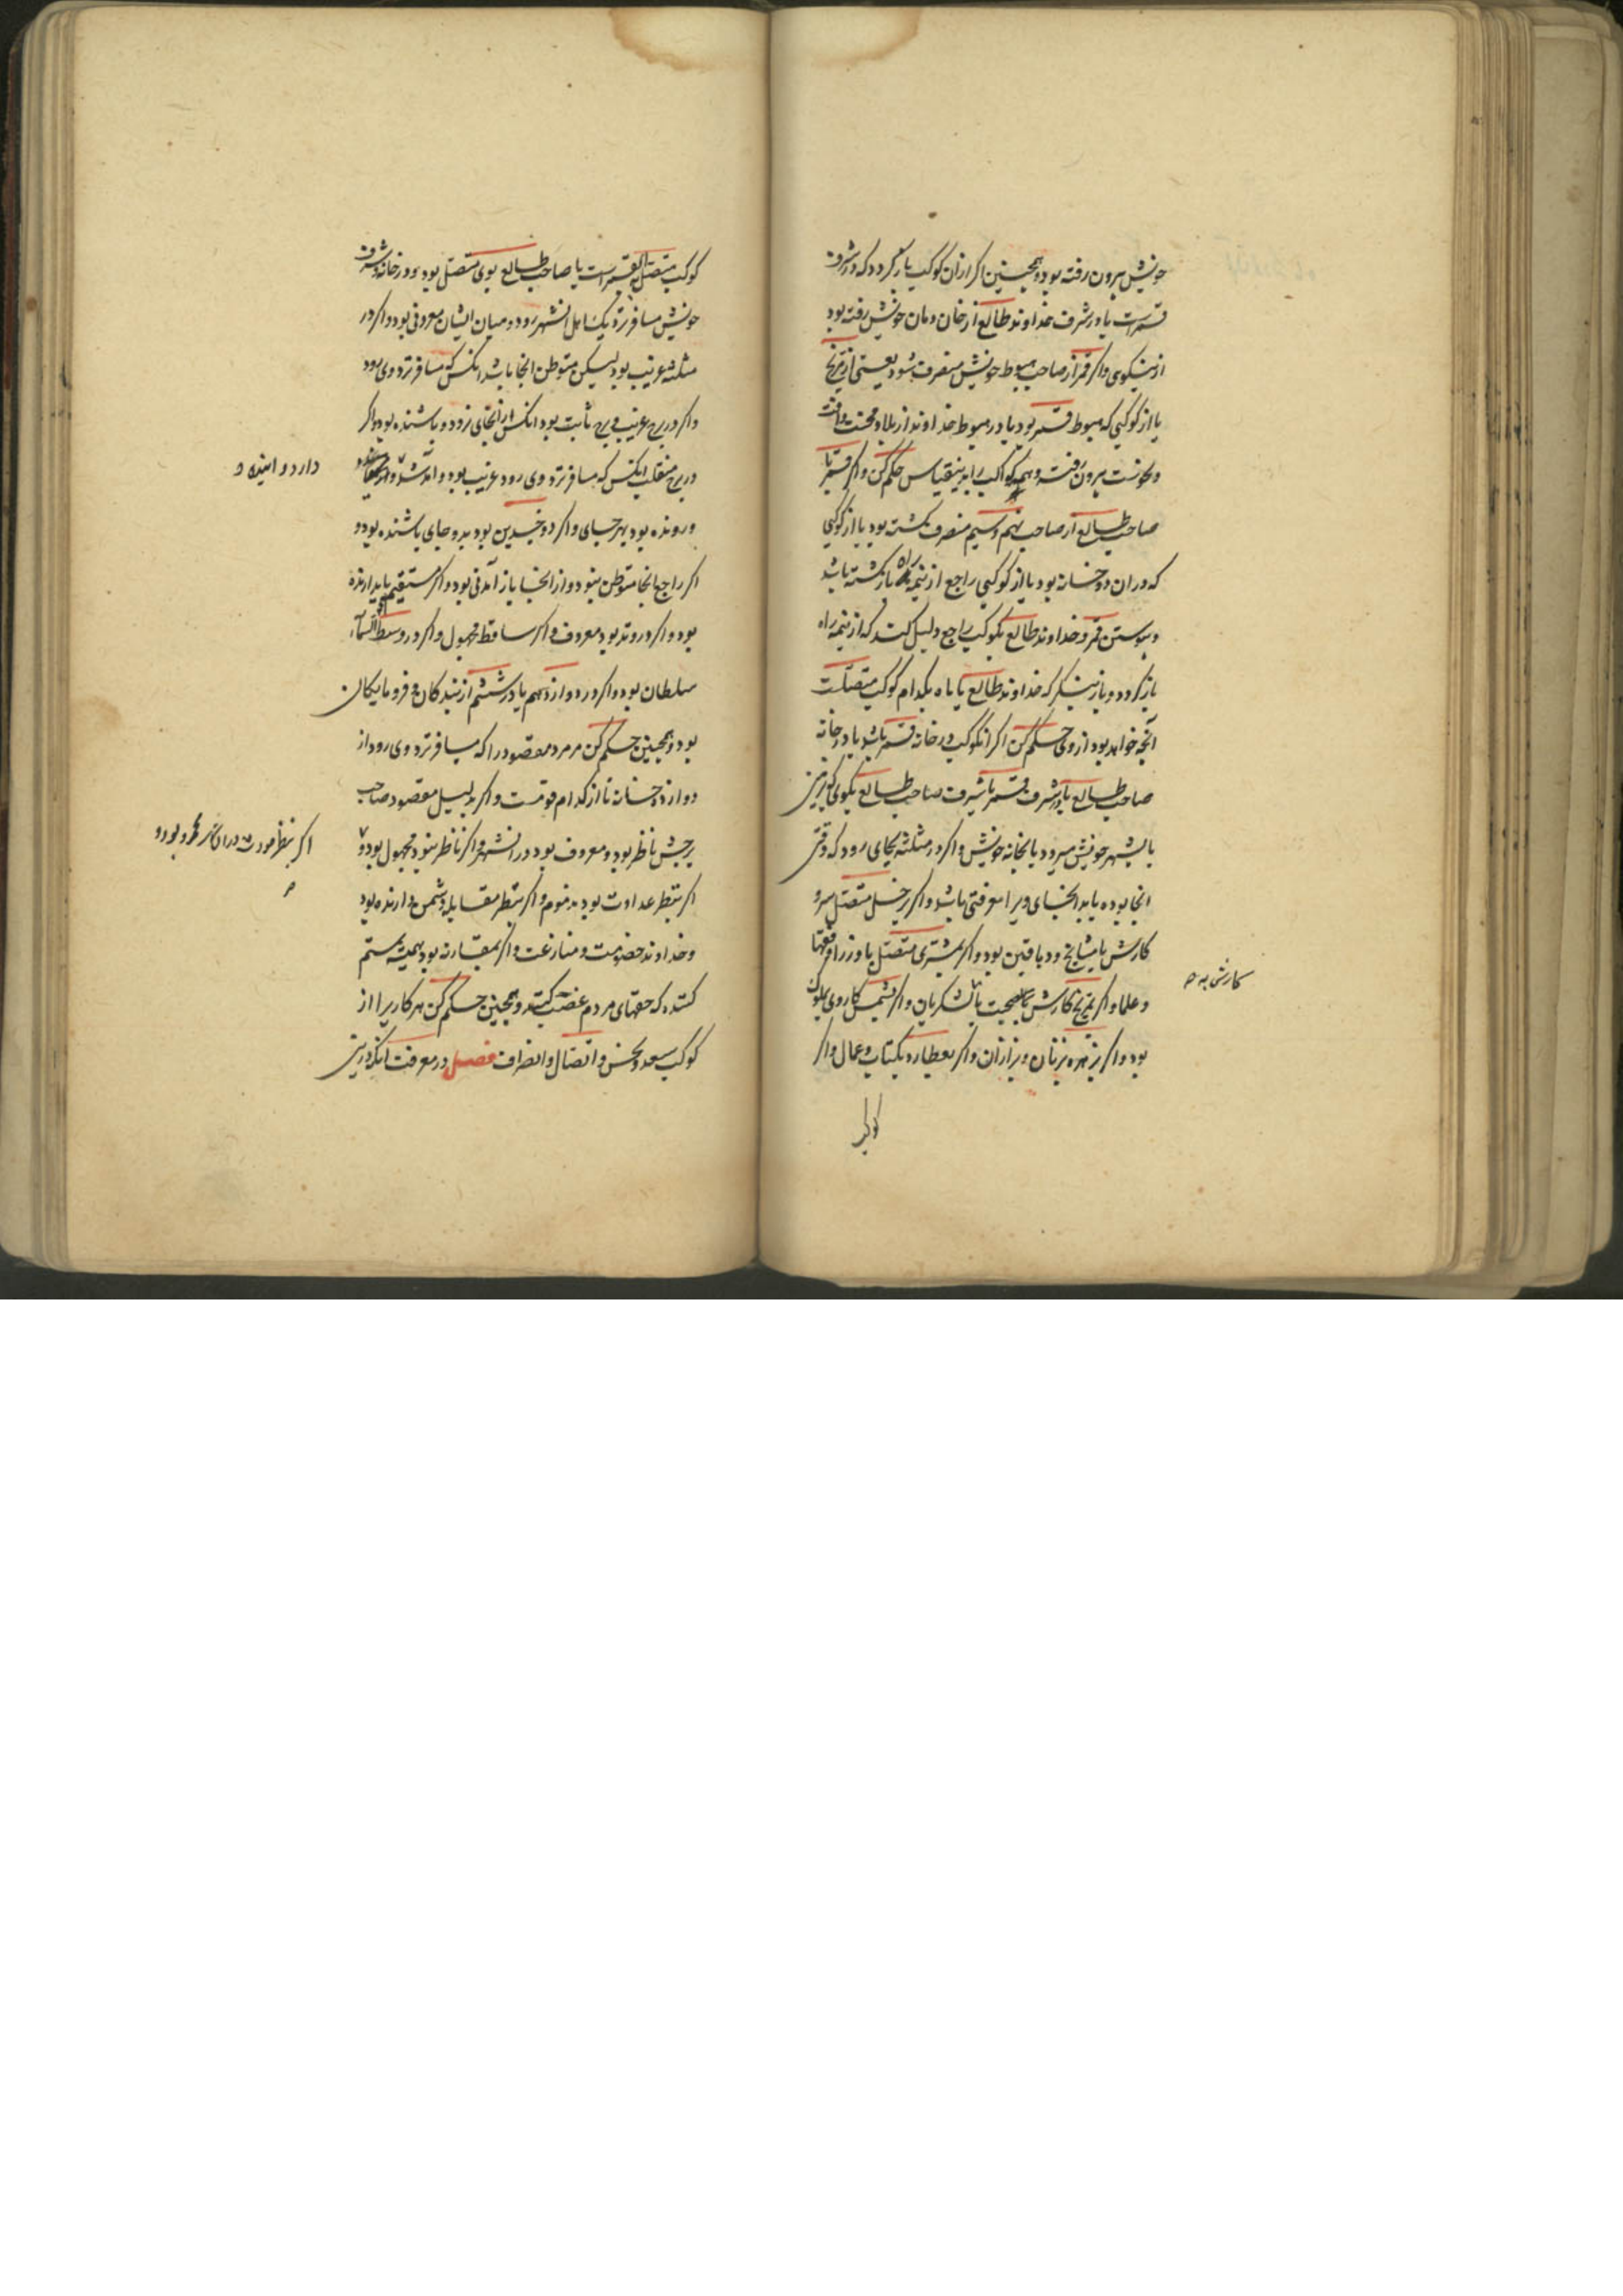 خویش بیرون رفته بود و همچنین اگر ازان کوکب بازگردد که در شرف
قمرست یا در شرف خداوند طالع از خان و مان خویش رفته بود
از نیکوی و اگر قمر از صاحب هبوط خویش منصرف شود یعنی از مریخ
یا از کوکبی که هبوط قمر بود یا در هبوط خداوند از بلا و محنت و آفت
و نحوست بیرون رفته و همه کواکب را بدینقیاس حکم کن و اگر قمر یا
صاحب طالع از صاحب نهم و سیم منصرف گشته بود یا از کوکبی
که دران دو خانه بود یا از کوکبی راجع از نیمه راه بازگشته باشد
و پیوستن قمر و خداوند طالع بکوکب راجع دلیل کند که از نیمه راه
بازگردد و باز بنگر که خداوند طالع یا ماه بکدام کوکب متصلست
آنچه خواهد بود از وی حکم کن اگر آنکوکب در خانه قمر باشد یا در خانه
صاحب طالع یا در شرف قمر یا شرف صاحب طالع بگوی که
یا بشهر خویش میرود یا بخانه خویش و اگر در مثلثه بجای رود که وقتی
آنجا بوده یا بدانجای ویرا معرفتی باشد و اگر بزحل متصل بود
کارش با مشایخ و دهاقین بود و اگر بمشتری متصل با وزرا و فقها
و علما و اگر بمریخ کارش بصحبت با لشکریان و اگر بشمس کار وی بملوک
بود و اگر بزهره بزنان و بزازان و اگر بعطارد بکتاب و عمال و اگر
کارش به
کوکب
کوکب متصل بقمرست یا صاحب طالع بوی متصل بود و در خانه و شرف
خویش مسافر نزدیک اهل آنشهر رود و میان ایشان معروفی بود و اگر در
مثلثه غریب بود لیکن متوطن آنجا باشد آنکس که مسافر نزد وی رود
و اگر در برج غریب و برج ثابت بود آنکس از آنجای نرود و باشنده بود و اگر
در برج منقلب آنکس که مسافر نزد وی رود غریب بود و آمد شد
و رونده بود بهر جای و اگر ذو جسدین بود بدو جای باشنده بود و
اگر راجع آنجا متوطن نبود و از آنجا باز آمدنی بود و اگر مستقیم پایدارنده
بود و اگر در وتد بود معروف و اگر ساقط مجهول و اگر در وسط السماء
سلطان بود و اگر در دوازدهم یا در ششم از بندکان و فرومایکان
بود و همچنین حکم کن مر مرد مقصود را که مسافر نزد وی رود از
دوازده خانه تا از کدام قومست و اگر دلیل مقصود صاحب
برجش ناظر بود و معروف بود در آنشهر و اگر ناظر نبود مجهول بود و
اگر بنظر عداوت بود مذموم و اگر بنظر مقابله دشمن دارنده بود
و خداوند خصومت و منازعت و اگر بمقارنه بود همیشه ستم
کننده که حقهای مردم غصب کند و همچنین حکم کن هر کاریرا از
کوکب سعد و نحس و اتصال و انصراف فصل در معرفت آنکه
دارد و آینده و
اگر بنظر مودت در آن شهر بود و